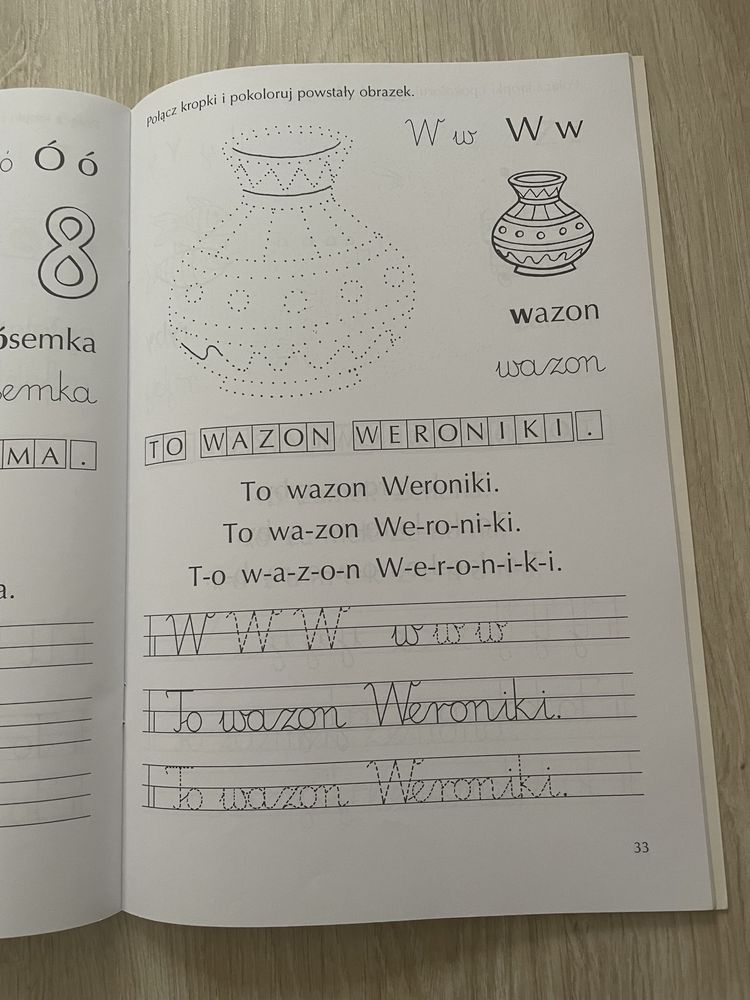 ó Ó ó
8
ósemka
semka
MA.
a.
Połącz kropki i pokoloruj powstały obrazek.
W w W w
wazon
wazon
TO WAZON WERONIKI.
To wazon Weroniki.
To wa-zon We-ro-ni-ki.
T-o w-a-z-o-n W-e-r-o-n-i-k-i.
W W W w w w
To wazon Weroniki.
To wazon Weroniki.
33